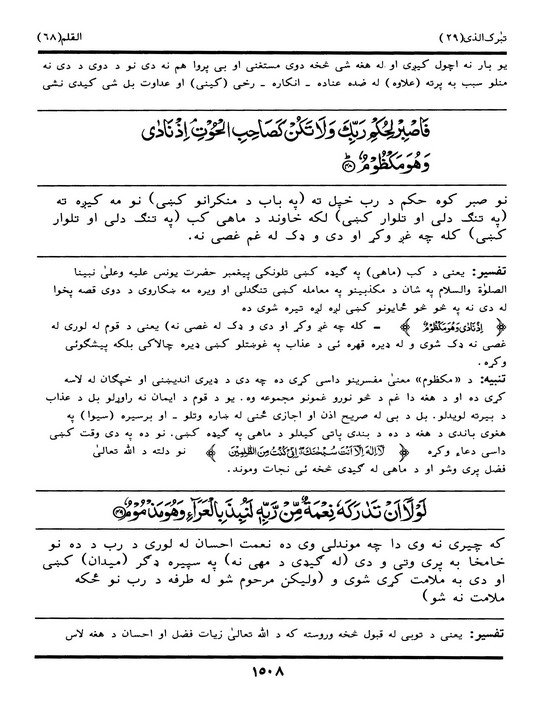 تبٰرک الذی (۲۹) القلم (۶۸)
یو بار نه اچول کیږی او له هغه شی څخه دوی مستغنی او بی پروا هم نه دی نو د دوی د دی نه
منلو سبب به پرته (علاوه) له ضده عناده ـ انکاره ـ رخی (کینی) او عداوت بل شی کیدی نشی
فَاصْبِرْ لِحُكْمِ رَبِّكَ وَلَا تَكُنْ كَصَاحِبِ الْحُوْتِ اِذْ نَادٰى
وَهُوَ مَكْظُوْمٌ ﴿۴۸﴾
نو صبر کوه حکم د رب خپل ته (په باب د منکرانو کښی) نو مه کیږه ته
(په تنګ دلی او تلوار کښی) لکه خاوند د ماهی کب (په تنګ دلی او تلوار
کښی) کله چه غږ وکړ او دی و ډک له غم غصی نه.
تفسیر: یعنی د کب (ماهی) په ګیډه کښی تلونکی پیغمبر حضرت یونس علیه وعلیٰ نبینا
الصلوٰة والسلام په شان د مکذبینو په معامله کښی تنګدلی او ویره مه ښکاروی د دوی قصه پخوا
له دی نه په څو څو ځایونو کښی لږه لږه تیره شوی ده
﴿ اِذْ نَادٰى وَهُوَ مَكْظُوْمٌ ﴾ ـ کله چه غږ وکړ او دی و ډک له غصی نه) یعنی د قوم له لوری له
غصی نه ډک شوی و له ډیره قهره ئی د عذاب په غوښتلو کښی ډیره چالاکی بلکه پیشګوئی
وکړه.
تنبیه: د «مکظوم» معنیٰ مفسرینو داسی کړی ده چه دی د ډیری اندیښنی او خپګان له لاسه
کړی ده او د هغه دا غم د څو نورو غمونو مجموعه وه. یو د قوم د ایمان نه راوړلو بل د عذاب
د بیرته لویدلو. بل د بی له صریح اذن او اجازی ځنی له ښاره وتلو ـ او برسیره (سیوا) په
هغوی باندی د هغه د ده د بندی پاتی کیدلو د ماهی په ګیډه کښی. نو ده په دی وقت کښی
داسی دعاء وکړه ﴿ لَّآ اِلٰهَ اِلَّآ اَنْتَ سُبْحٰنَكَ اِنِّىْ كُنْتُ مِنَ الظّٰلِمِيْنَ ﴾ نو دلته د الله تعالیٰ
فضل پری وشو او د ماهی له ګیډی څخه ئی نجات وموند.
لَوْلَآ اَنْ تَدٰرَكَهٗ نِعْمَةٌ مِّنْ رَّبِّهٖ لَنُبِذَ بِالْعَرَآءِ وَهُوَ مَذْمُوْمٌ ﴿۴۹﴾
که چیری نه وی دا چه موندلی وی ده نعمت احسان له لوری د رب د ده نو
خامخا به پری وتی و دی (له ګیډی د مهی نه) په سپیره ډګر (میدان) کښی
او دی به ملامت کړی شوی و (ولیکن مرحوم شو له طرفه د رب نو ځکه
ملامت نه شو)
تفسیر: یعنی د توبی له قبول څخه وروسته که د الله تعالیٰ زیات فضل او احسان د هغه لاس
۱۵۰۸